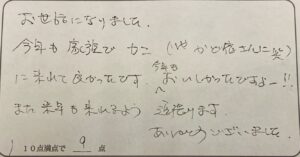 お世話になりました。
今年も家族でカニ(いやかど依さんに笑)
に来れて良かったです。今年もおいしかったですよー!!
また来年も来れるよう頑張ります。
ありがとうございました。
10点満点で 9 点